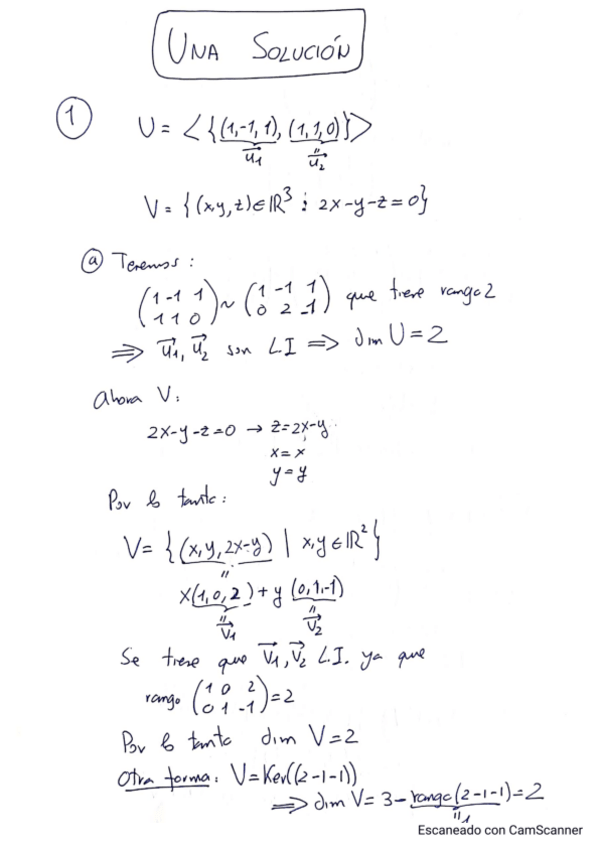 UNA SOLUCIÓN
1 U = <{(1,-1,1), (1,1,0)}>
u1 u2
V = {(x,y,z)∈ℝ³ : 2x-y-z=0}
a Tenemos:
(1 -1 1) ~ (1 -1 1) que tiene rango 2
(1 1 0) (0 2 -1)
⇒ u1, u2 son L.I ⇒ dim U = 2
Ahora V:
2x-y-z=0 → z=2x-y
x=x
y=y
Por lo tanto:
V= {(x,y,2x-y) | x,y∈ℝ²}
"
x(1,0,2)+y(0,1,-1)
" "
v1 v2
Se tiene que v1, v2 L.I. ya que
rango (1 0 2) = 2
(0 1 -1)
Por lo tanto dim V=2
Otra forma: V=Ker((2 -1 -1))
⇒ dim V= 3-rango(2 -1 -1)=2
" 1
Escaneado con CamScanner